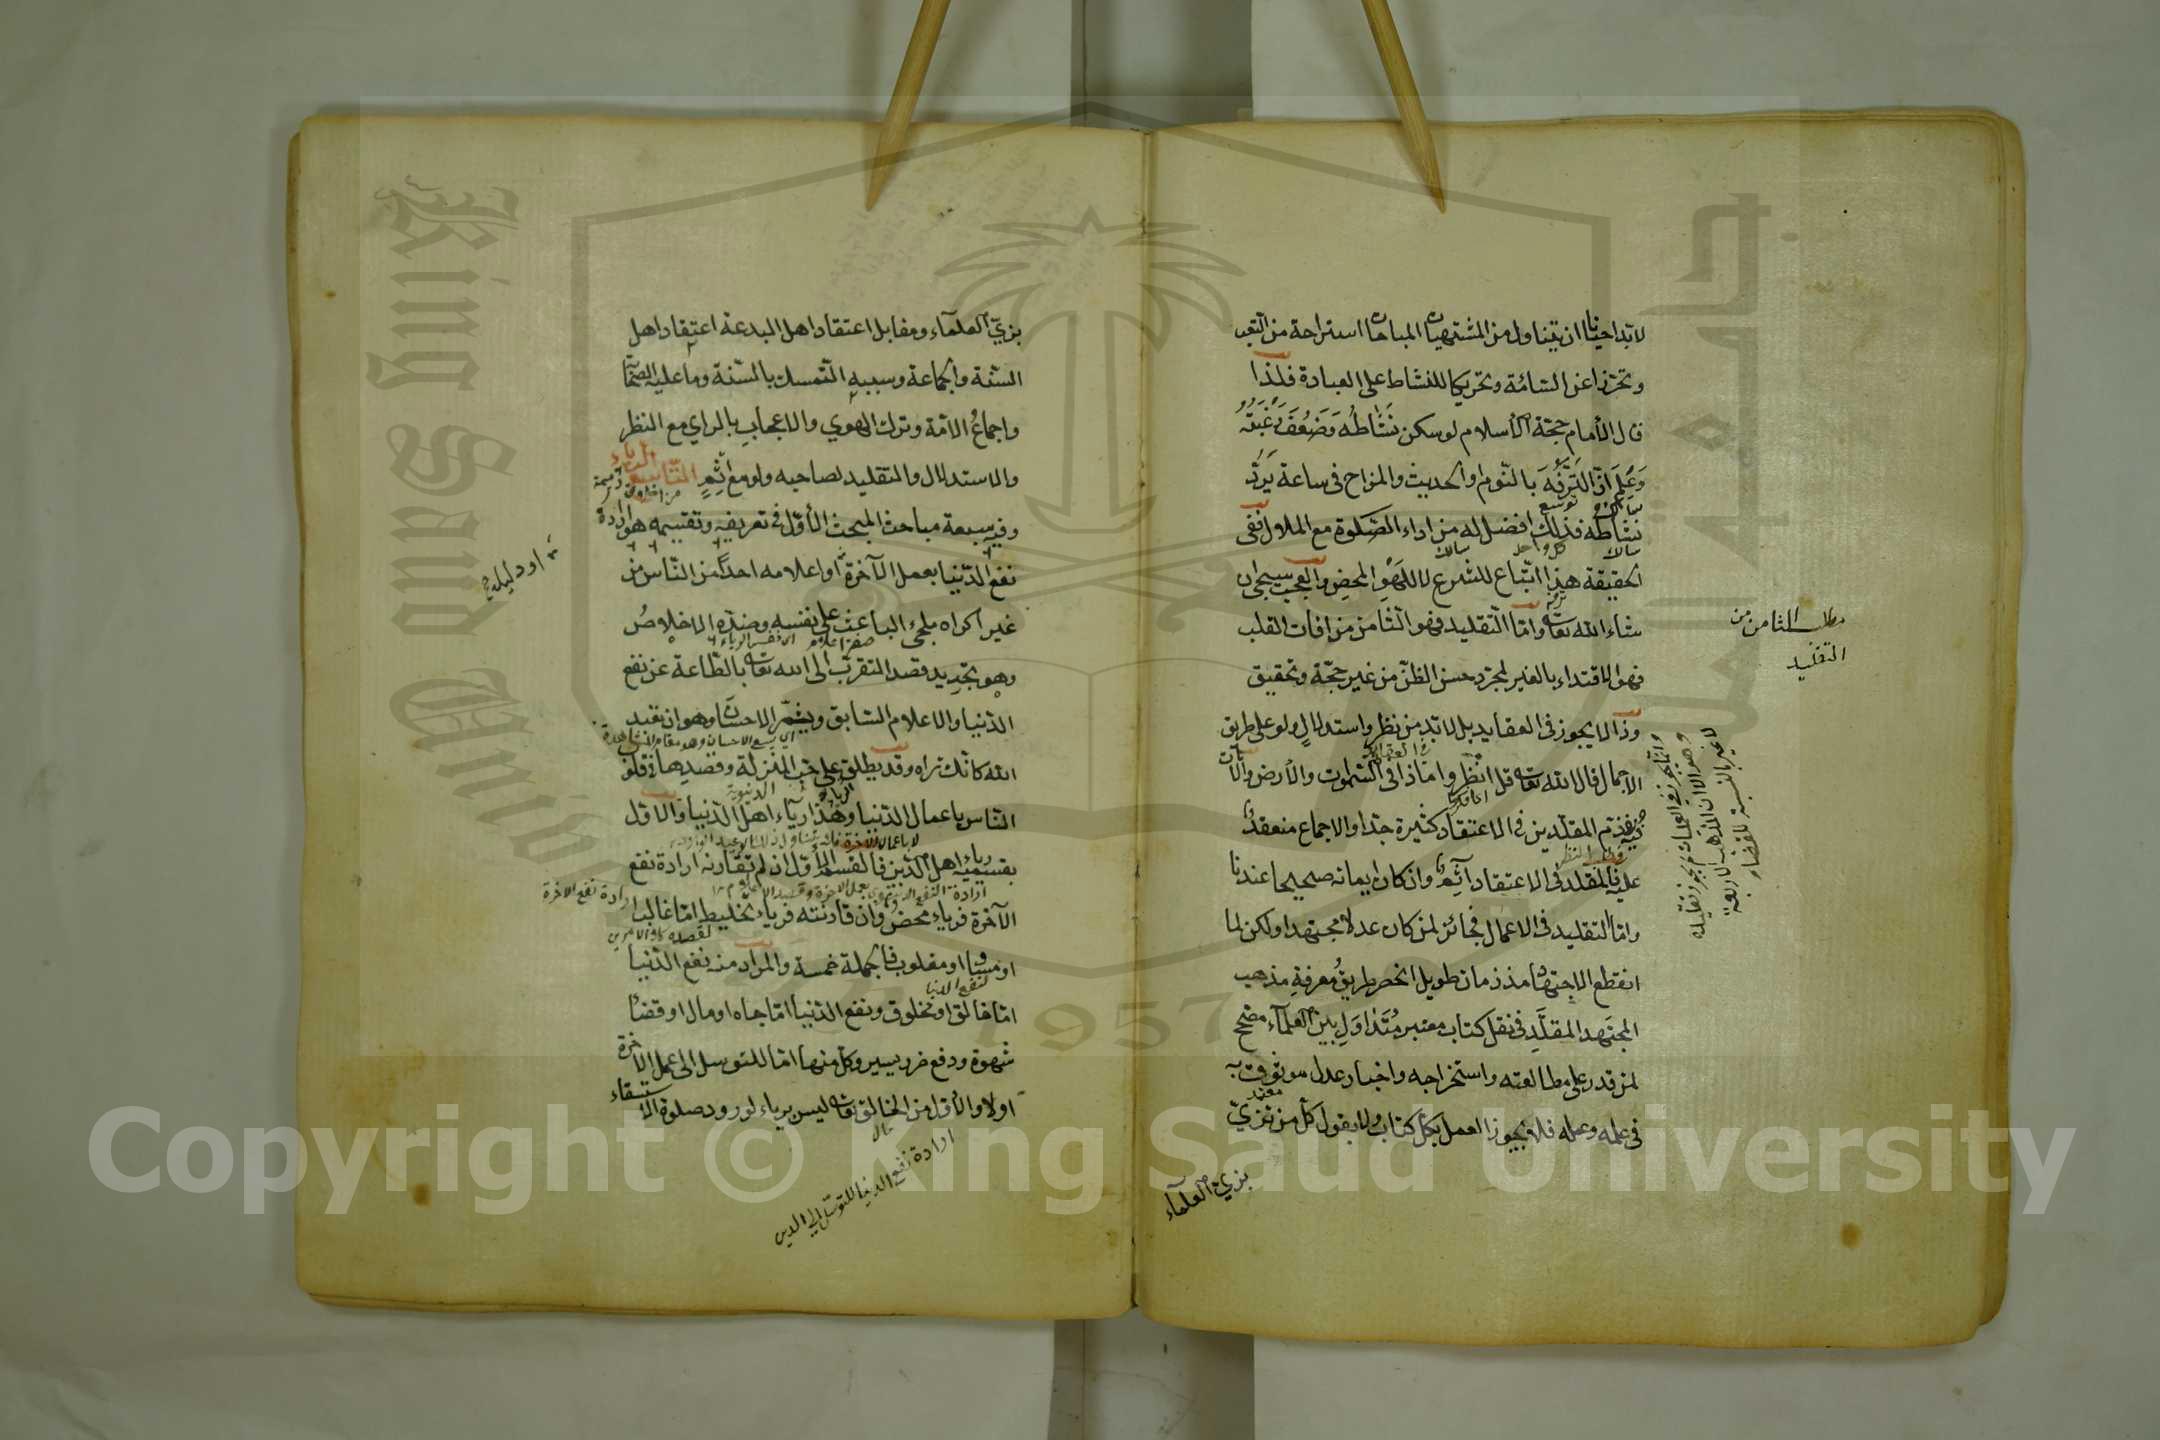 لا بد احيانا ان يتناول من المشتهيات المباحات استراحة من التعب
وتحرزا عن السآمة وتحريكا للنشاط على العبادة فلذا
قال الأمام حجة الأسلام لو سكن نَشَاطُه وَضَعُفَ رَغْبَتُهُ
وَعَلِمَ اَنَّ التَرَفُّهَ بالنّوم او الحديث والمزاح فى ساعة يَرُدُّ
نشاطه فذلك افضل له من اداء الصّلوة مع الملال ففى
الحقيقة هذا اتّباع للشرع لا للهوِ المحضِ والعجب سيجئ ان
شاء الله تعالى وامّا التّقليد فهو الثّامن من افات القلب
فهو الاقتداء بالغير لمجرّد حسن الظنّ من غير حجّة وتحقيق
وذا لا يجوز فى العقايد بل لا بد من نظر واستدلال ولو على طريق
الأجمال قال الله تعالى قل انظروا ماذا فى السّموات والأرض والآيات
فى ذم المقلّدين فى الاعتقاد كثيرة جدّا والاجماع منعقد
عليه فالمقلد فى الاعتقاد آثِمٌ وان كان ايمانه صحيحا عندنا
وامّا التقليد فى الاعمال فجائز لمن كان عدلا مجتهدا ولكن لما
انقطع الاجتهاد مذ زمان طويل انحصر طريقُ معرفةِ مذهب
المجتهد المقلَّدِ فى نقل كتاب معتبر مُتَدَاوَلٍ بين العلمآء مصحّح
لمن قدر على مطالعته واستخراجه واخبار عدل موثوق به
فى علمه وعمله فلا يجوز العمل بكلّ كتاب ولا بقول كلّ من تَزَيّ
بزيّ العلمآء
مطلب الثامن من
التقليد
بزيّ العلمآء ومقابل اعتقاد اهل البدعة اعتقاد اهل
السّنة والجماعة وسببه التّمسك بالسّنة وما عليه الصحابة
واجماعُ الأمّة وترك الهوي والاعجاب بالراي مع النظر
والاستدلال والتقليد لصاحبه ولو مع اِثْمٍ التّاسع الرياء
وفيه سبعة مباحث المبحث الأوّل فى تعريفه وتقسيمه هو ارادة
نفع الدّنيا بعمل الآخرة او اعلامه احداً من النّاس من
غير اكراه ملجئ الباعث على نفسه وضدّه الاخلاصُ
وهو تجريد قصد التقرّب الى الله تعالى بالطّاعة عن نفع
الدّنيا والاعلام السّابق ويثمّر الاحسان وهو ان تعبد
الله كانّك تراه وقد يطلق على حب المنزلة وقصدها فى قلوب
النّاس باعمال الدّنيا وهذا ريآء اهل الدّنيا والاوّل
بقسميه رياء اهل الدّين فالقسم الأوّل ان لم تقارنه ارادة نفع
الآخرة فرياء محض وان قارنته فرياء تخليط امّا غالب
او مساو او مغلوب فالجملة خمسة والمراد منه نفع الدّنيا
امّا خالق او مخلوق ونفع الدّنيا امّا جاه او مال او قضاء
شهوة ودفع ضرر يسير وكلّ منها امّا للتوسل الى عمل الآخرة
اولا والأوّل من الخالق تعالى ليس برياء لورود صلوة الاستسقاء
ارادة نفع الدنيا للتوسّل الى الدين
Copyright © King Saud University
King Saud University
جامعة الملك سعود
1957